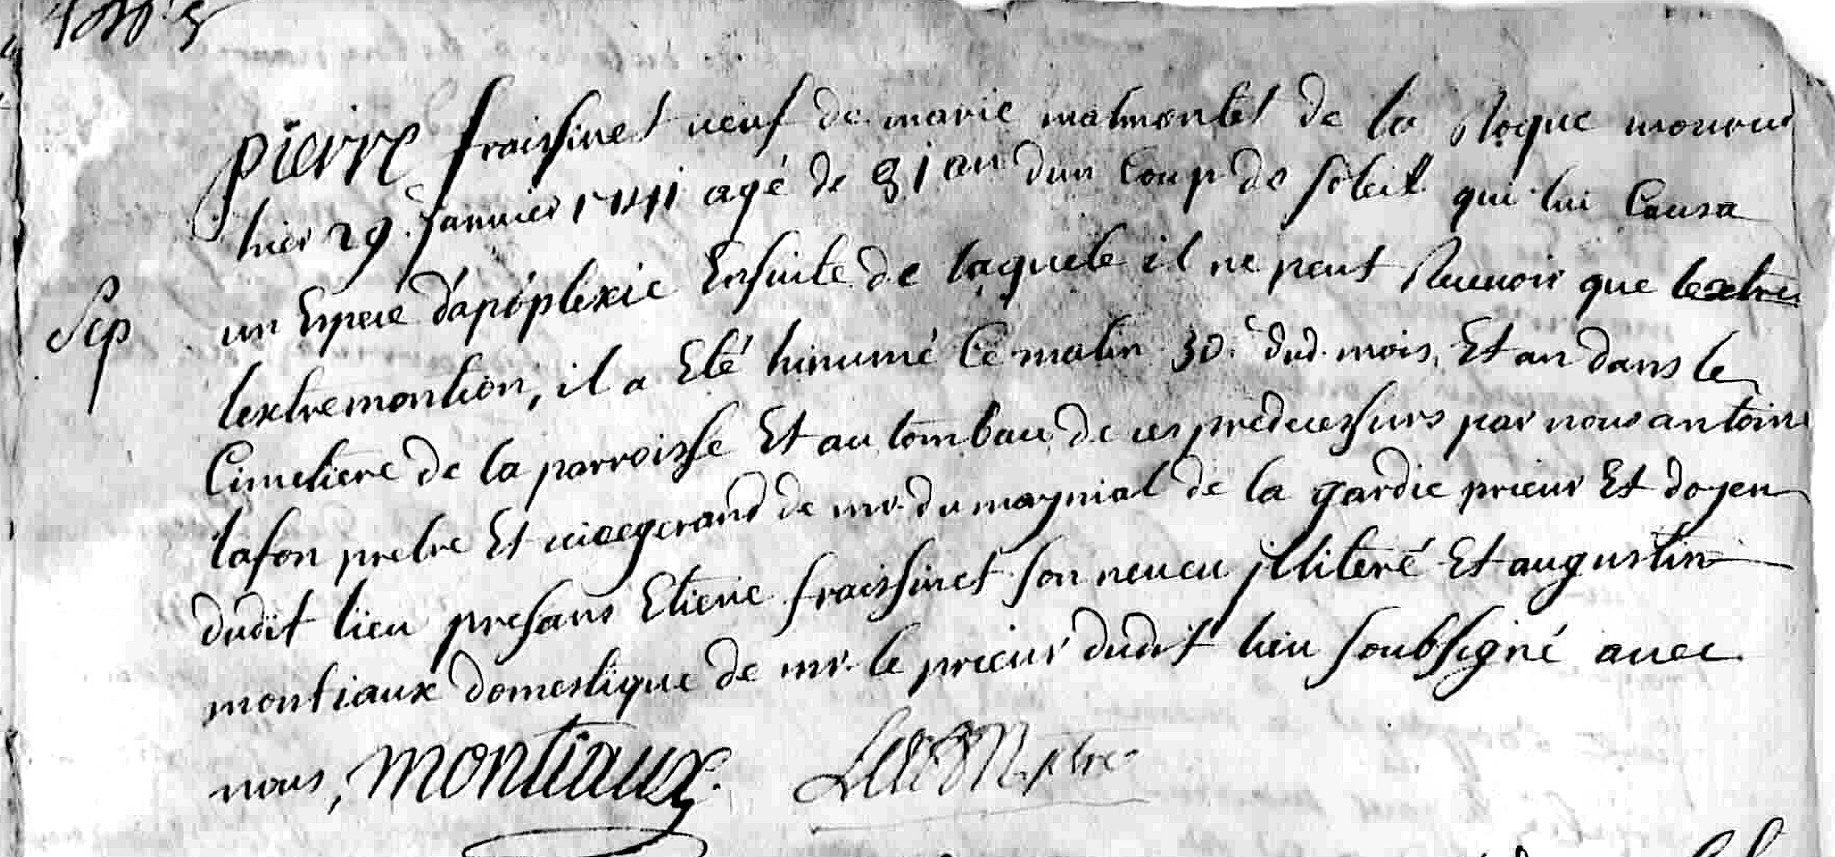 pierre fraissinet veuf de marie malmontet de la Roque mourut
hier 29.e janvier 1741 agé de 81 an dun coup de soleil qui lui causa
Sep
un Espece d'apóplexie Ensuite de laquele il ne peut Recevoir que lextre
lextremontion, il a Eté hinumé Ce matin 30.e dud. mois, Et an dans le
Cimetiere de la parroisse Et au tombau de ces predecessurs par nous antoine
lafon pretre Et vicegerand de mr. du maynial de la gardie prieur Et doyen
dudit lieu presans Etiene fraissinet son neveu jlliteré Et augustin
montiaux domestique de mr. le prieur dudit lieu soubsigné avec
nous, montiaux. Lafon ptre